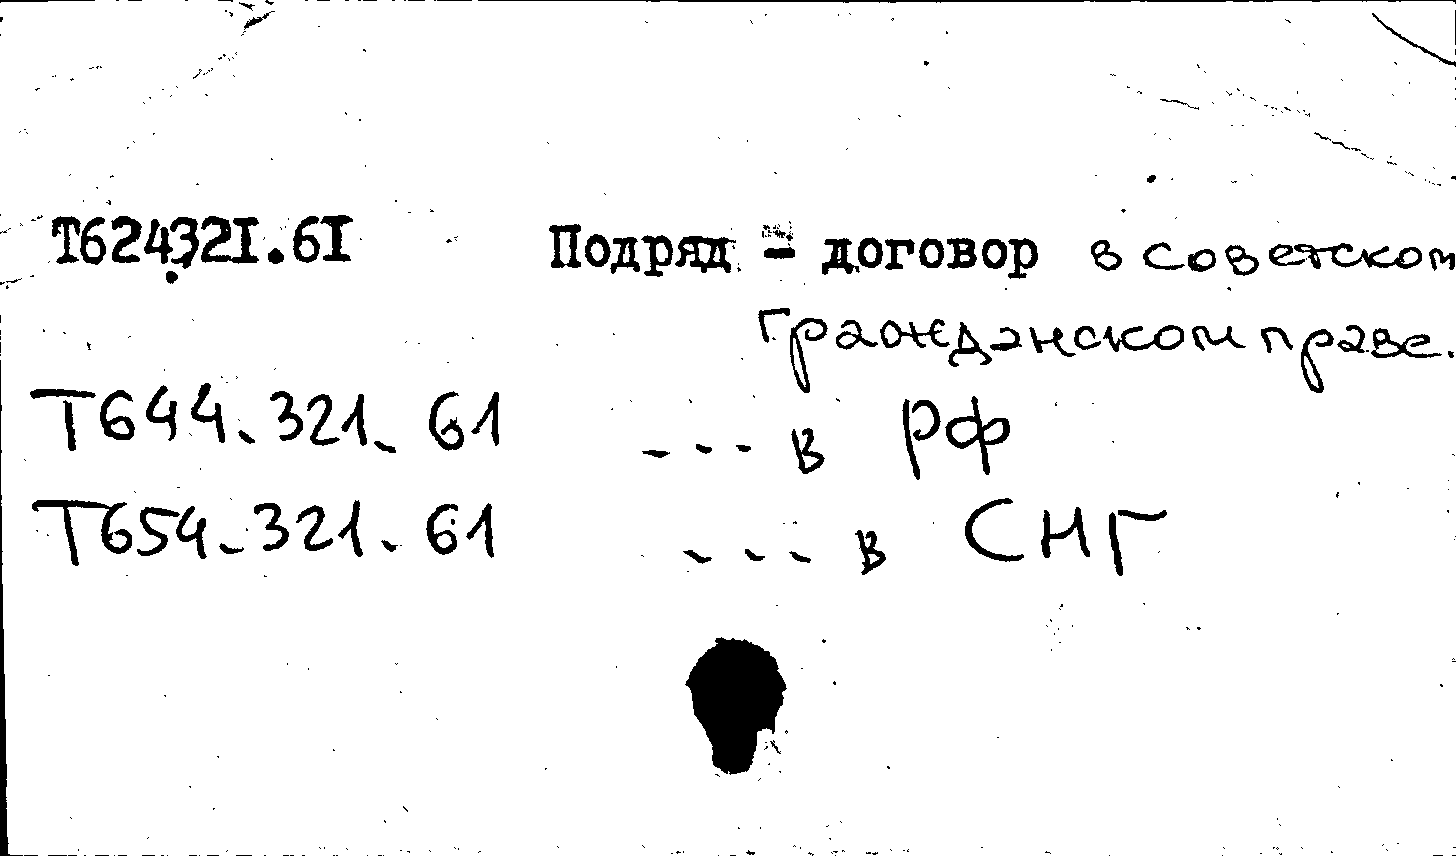 Т624.321.61 Подряд - договор в советском
гражданском праве.
Т644.321.61 --- в РФ
Т654.321.61 --- в СНГ